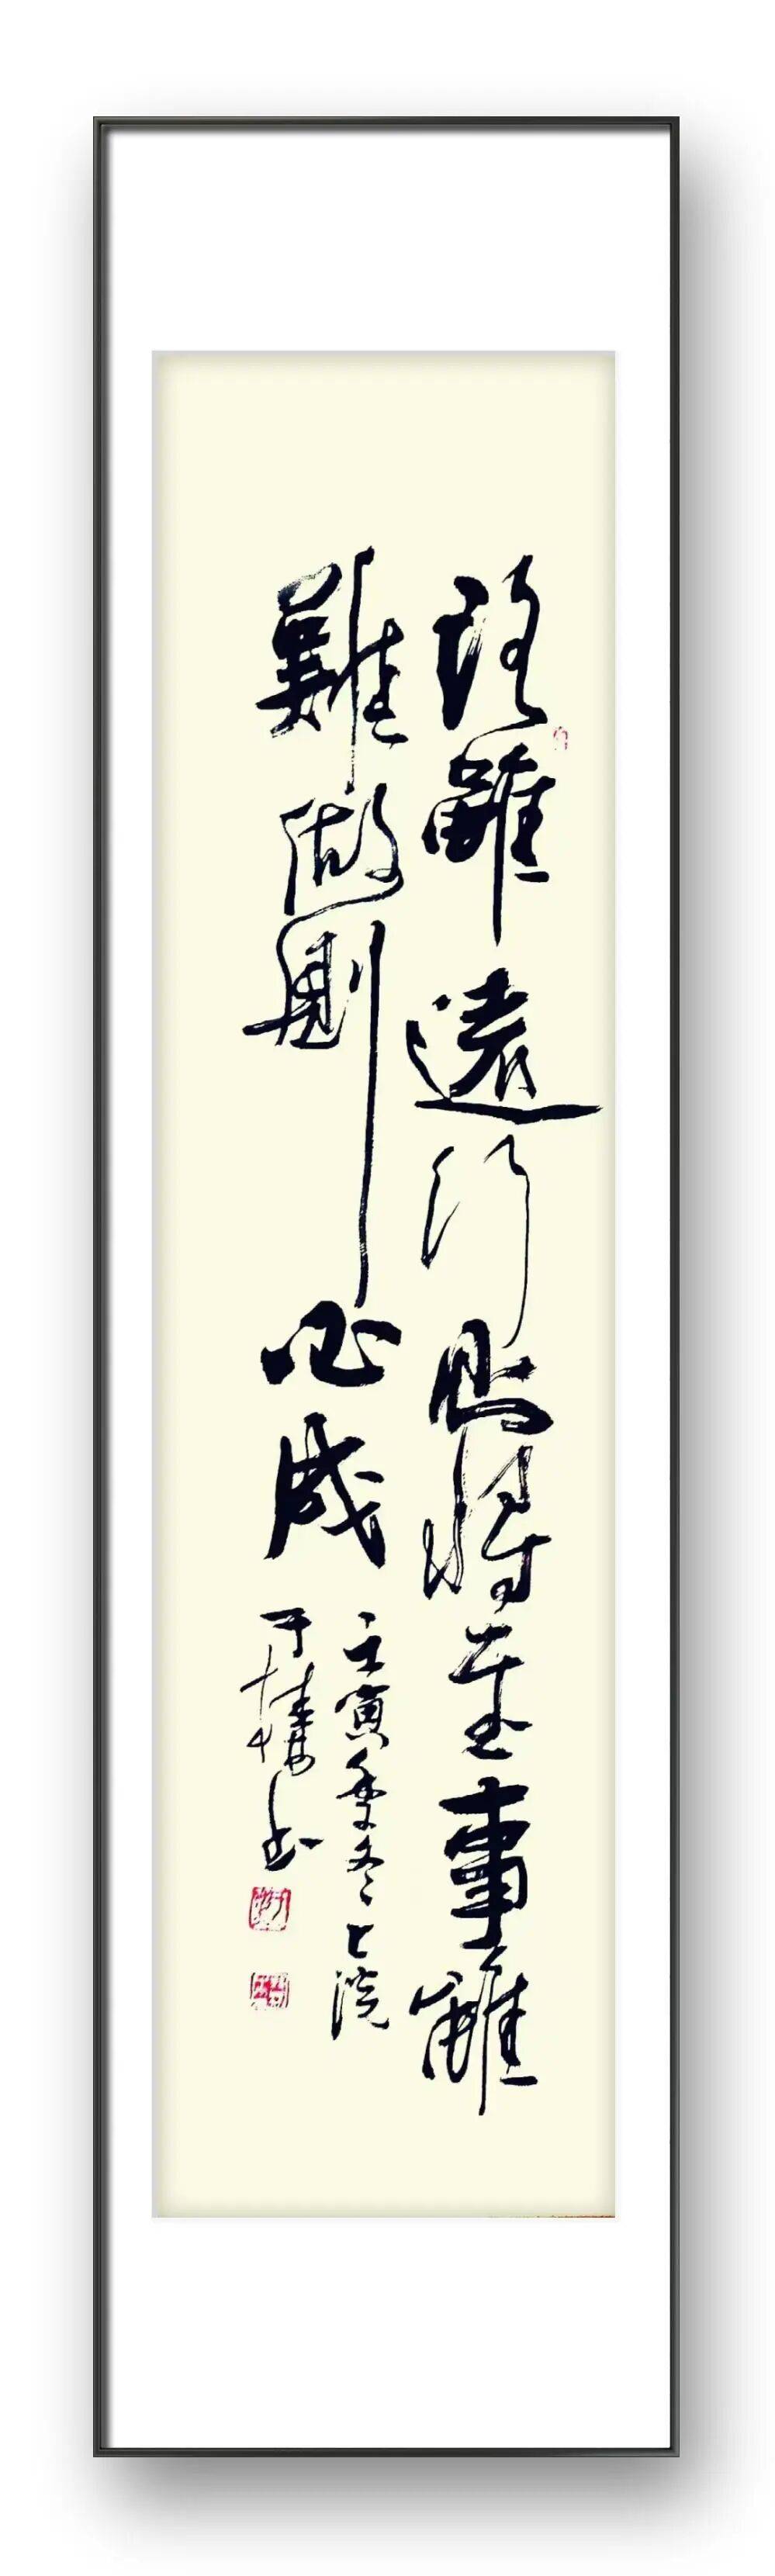 路雖遠行則將至事雖
難做則必成
壬寅季冬上浣
于棲書